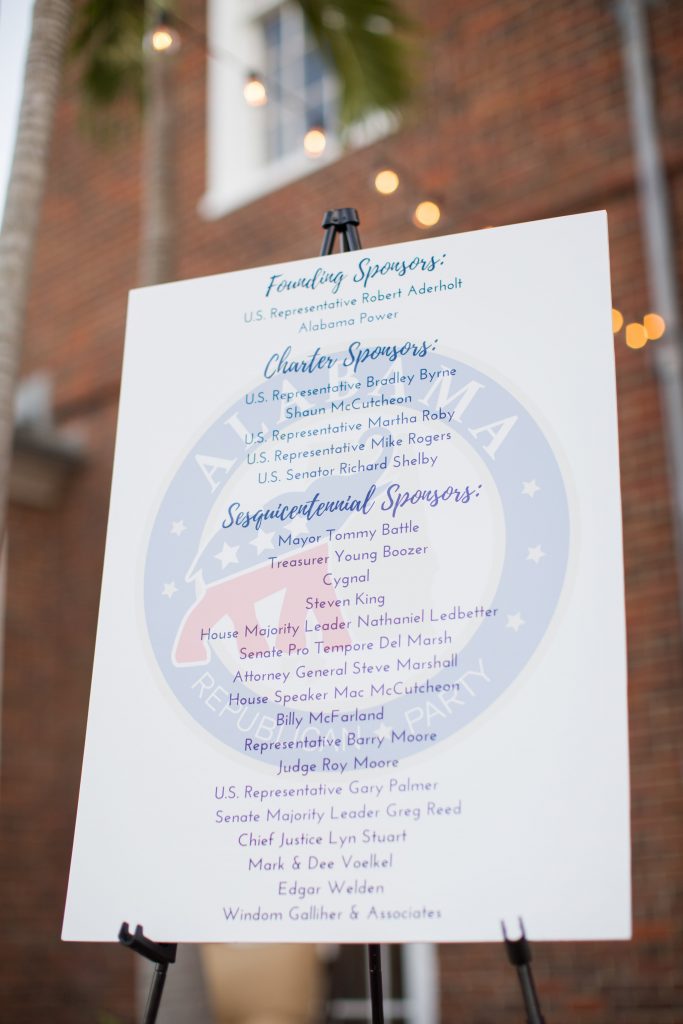 Founding Sponsors:
U.S. Representative Robert Aderholt
Alabama Power
Charter Sponsors:
U.S. Representative Bradley Byrne
Shaun McCutcheon
U.S. Representative Martha Roby
U.S. Representative Mike Rogers
U.S. Senator Richard Shelby
Sesquicentennial Sponsors:
Mayor Tommy Battle
Treasurer Young Boozer
Cygnal
Steven King
House Majority Leader Nathaniel Ledbetter
Senate Pro Tempore Del Marsh
Attorney General Steve Marshall
House Speaker Mac McCutcheon
Billy McFarland
Representative Barry Moore
Judge Roy Moore
U.S. Representative Gary Palmer
Senate Majority Leader Greg Reed
Chief Justice Lyn Stuart
Mark & Dee Voelkel
Edgar Welden
Windom Galliher & Associates
ALABAMA
REPUBLICAN ★ PARTY